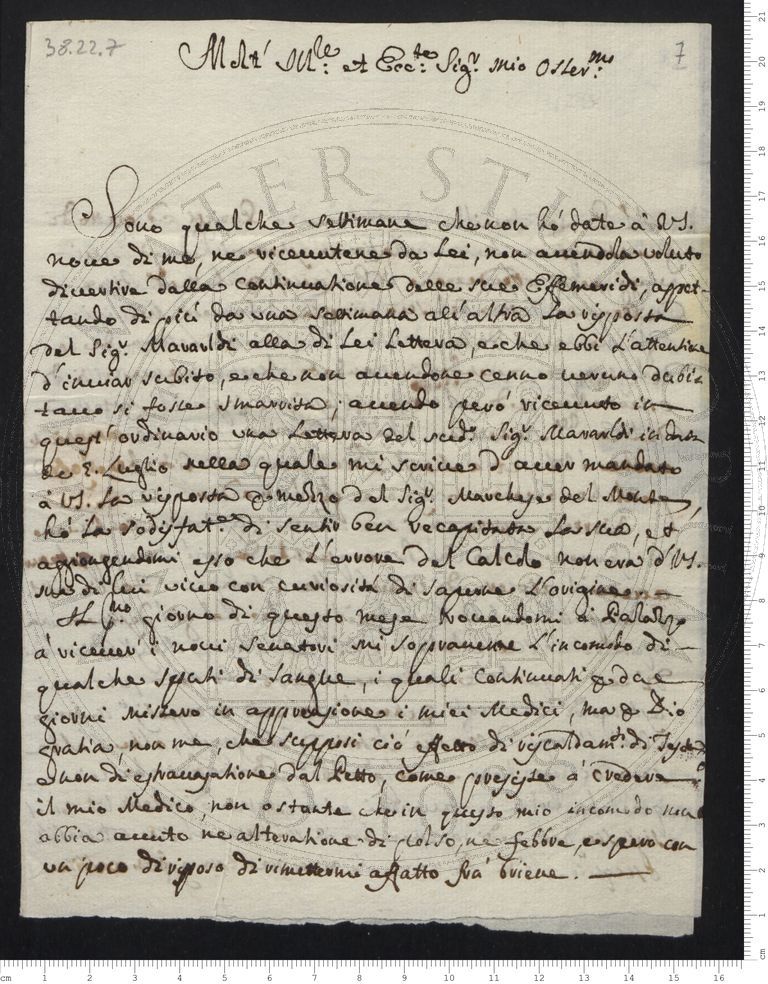 38.22.7
7
Molt' Ill:re et Ecc:te Sig:r mio Osser:mo
Sono qualche settimane che non hó date à VS.
nove di me, ne ricevutene da Lei, non avendola voluto
divertire dalla Continuatione delle sue Effemeridi, aspet-
tando di più da una settimana all'altra La risposta
del Sig.r Maraldi alla di Lei Lettera, e che ebbi L'attentione
d'inviar subito, e che non avendone cenno veruno dubi-
tavo si fosse smarrita; avendo però ricevuto in
quest'ordinario una Lettera del sud.o Sig.r Maraldi in data
de 2. Luglio nella quale mi scrive d'aver mandato
à VS. La risposta p mezzo del Sig.r Marchese del Monte,
hó La sodisfat.e di sentir ben recapitata La sua, et
aggiongendomi esso che L'errore del Calcolo non era d'VS.
ma di lui vivo con curiosità di saperne L'origine.
Il p.mo giorno di questo mese trovandomi à Palazzo
à ricever' i novi Senatori mi sopravenne L'incomodo di
qualche sputi di sangue, i quali Continuati p due
giorni misero in apprensione i miei Medici, ma p Dio
gratia, non me, che supposi ciò effetto di riscaldam.to di Testa
e non di estravasatione dal Petto, come persiste à credere
il mio Medico, non ostante che in questo mio incomodo non
abbia avuto ne alteratione di polso, ne febbre, e spero con
un poco di riposo di rimettermi affatto frà breve.